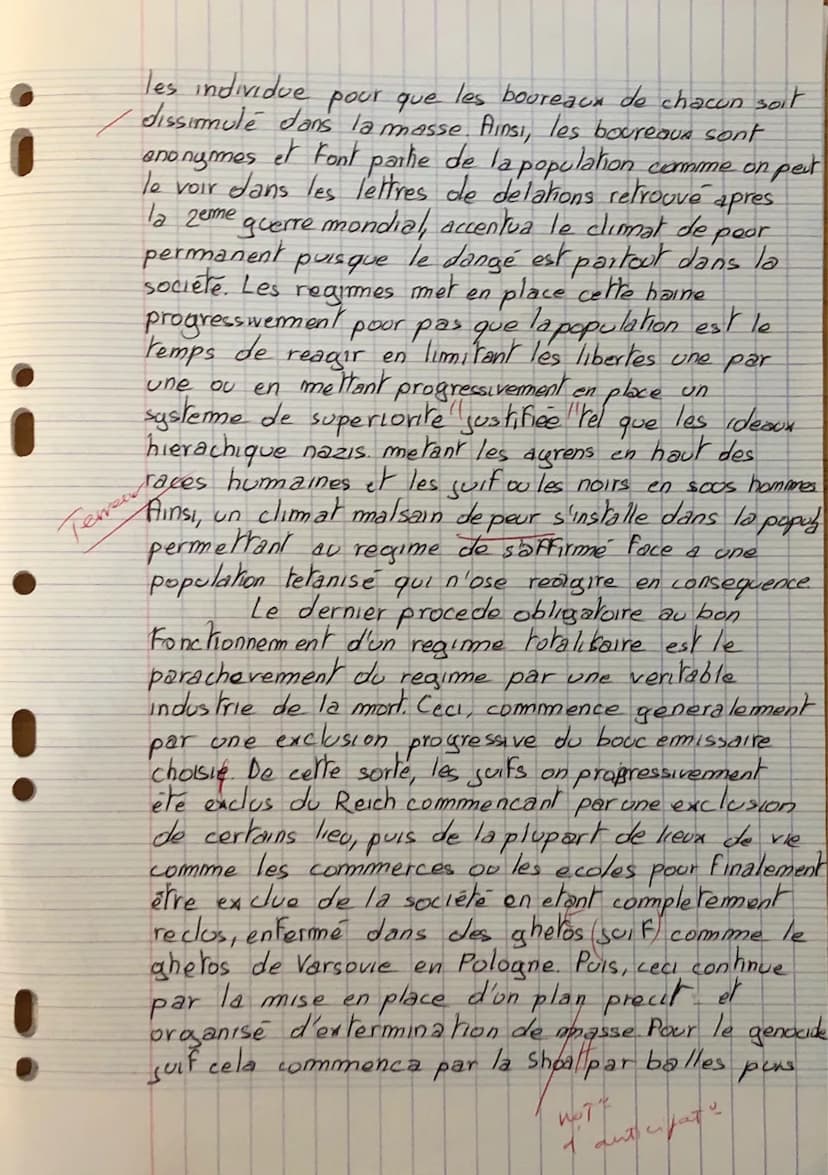 les individue pour que les boureaux de chacun soit
dissimulé dans la masse. Ainsi, les boureaux sont
anonymes et font partie de la population commme on peut
le voir dans les lettres de delations retrouvé apres
la 2eme guerre mondial, accentua le climat de peur
permanent puisque le dangé est partout dans la
société. Les regimes met en place cette haine
progressivement pour pas que la population est le
temps de reagir en limitant les libertes une par
une ou en mettant progressivement en place un
systeme de superiorite "justifiée" tel que les ideaux
hierachique nazis. metant les ayrens en haut des
races humaines et les juif ou les noirs en sous hommes
Terreur
Ainsi, un climat malsain de peur s'installe dans la popul
permettant au regime de s'affirmé face a une
population tetanisé qui n'ose reagire en consequence
Le dernier procede obligatoire au bon
fonctionnement d'un regime totalitaire est le
parachevement du regime par une veritable
industrie de la mort. Ceci, commmence generalement
par une exclusion progressive du bouc emissaire
choisi. De cette sorte, les juifs on progressivement
été exclus du Reich commencant par une exclusion
de certains lieu, puis de la plupart de lieux de vie
comme les commerces ou les ecoles pour finalement
être exclue de la société en etant completement
reclus, enfermé dans des ghetos (juif) commme le
ghetos de Varsovie en Pologne. Puis, ceci continue
par la mise en place d'un plan precit et
organisé d'extermination de masse. Pour le genocide
juif cela commmenca par la Shoah par balles puis
not°
d'anticipat°